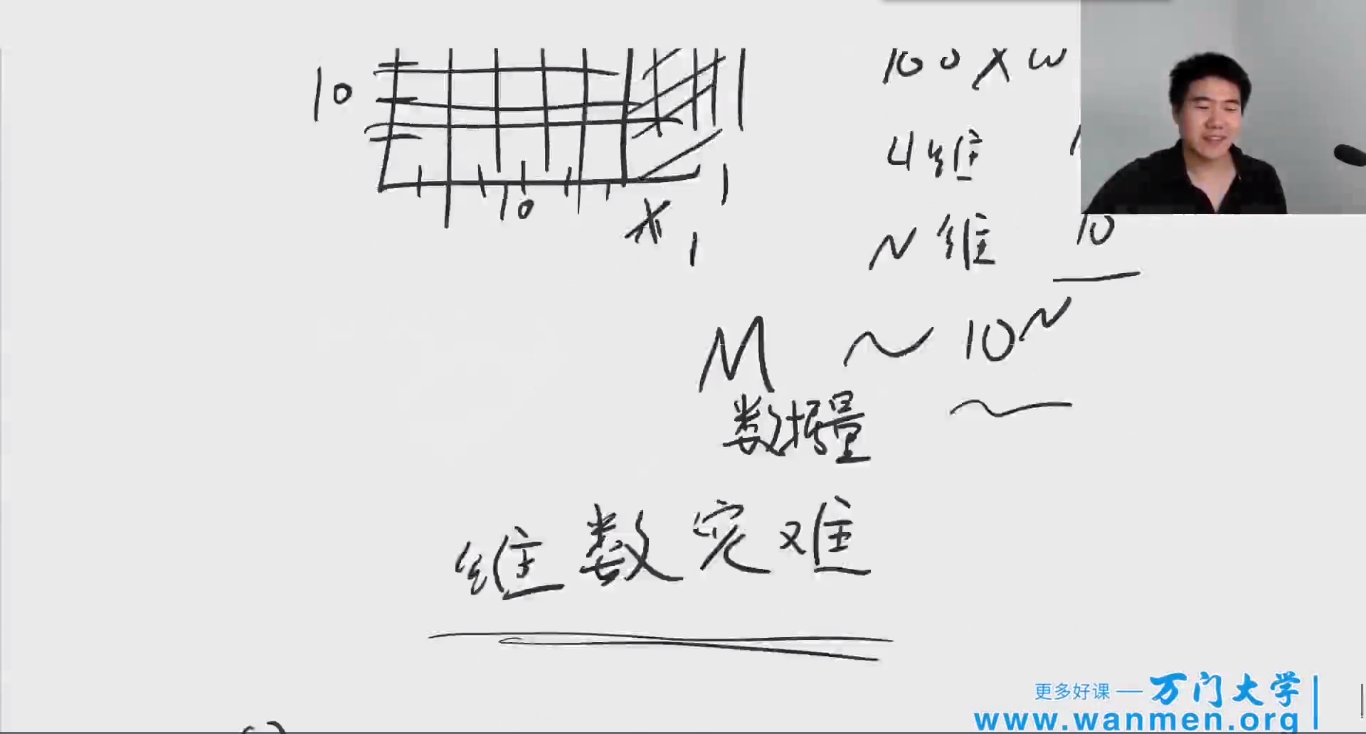 10
10
X 1
1
100 X 10
4维
N维 10
M ~ 10^N
数据量
维数灾难
更多好课 — 万门大学
www.wanmen.org